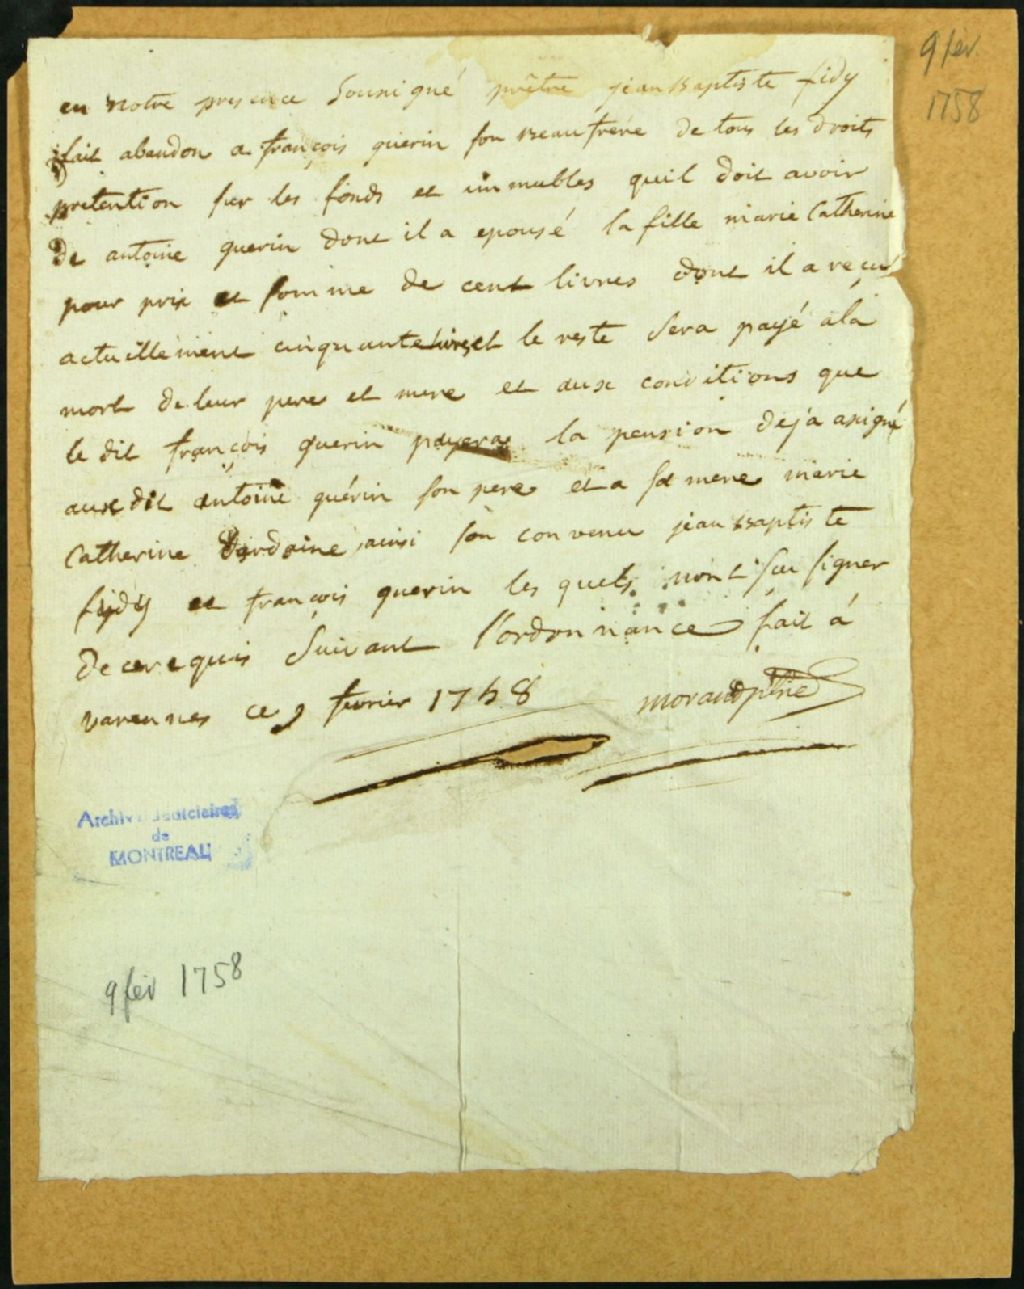 9 fév
1758
en notre presence Sousigné prêtre jean Baptiste fidy
fait abandon a françois guerin son Beau frere de tous les droits
pretention sur les fonds et immubles quil doit avoir
de antoine guerin dont il a epousé la fille marie Catherine
pour prix et somme de cent livres dont il a reçu
actuellement cinquante livres et le reste sera payé a la
mort de leur pere et mere et aux conditions que
le dit françois guerin payera la pension deja asigné
aux dit antoine guérin son pere et a sa mere marie
Catherine ainsi son convenu jean Baptiste
fydy et françois guerin les quels nont su signer
de ce requis suivant l'ordonnance fait à
varennes ce 9 fevrier 1758 morand ptre
Archives Judiciaires
de
MONTREAL
9 fév 1758